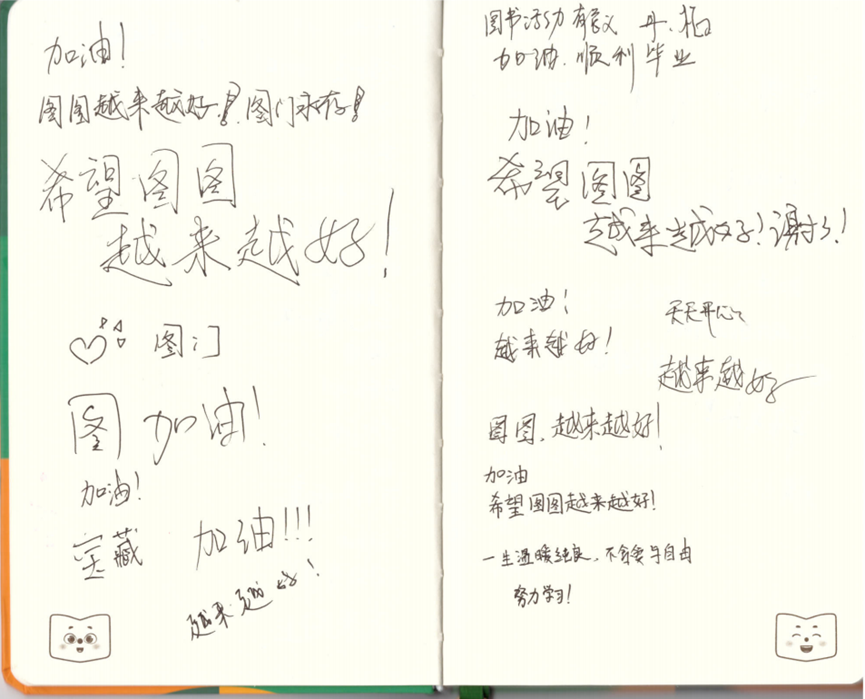 加油!
图图越来越好!图门永存!
希望图图
越来越好!
图门
图 加油!
加油!
宝藏 加油!!!
越来越好!
图书活动有意义
加油.顺利毕业
加油!
希望图图
越来越好!谢谢!
加油!
天天开心
越来越好!
越来越好
图图,越来越好!
加油
希望图图越来越好!
一生温暖纯良,不舍爱与自由
努力学习!